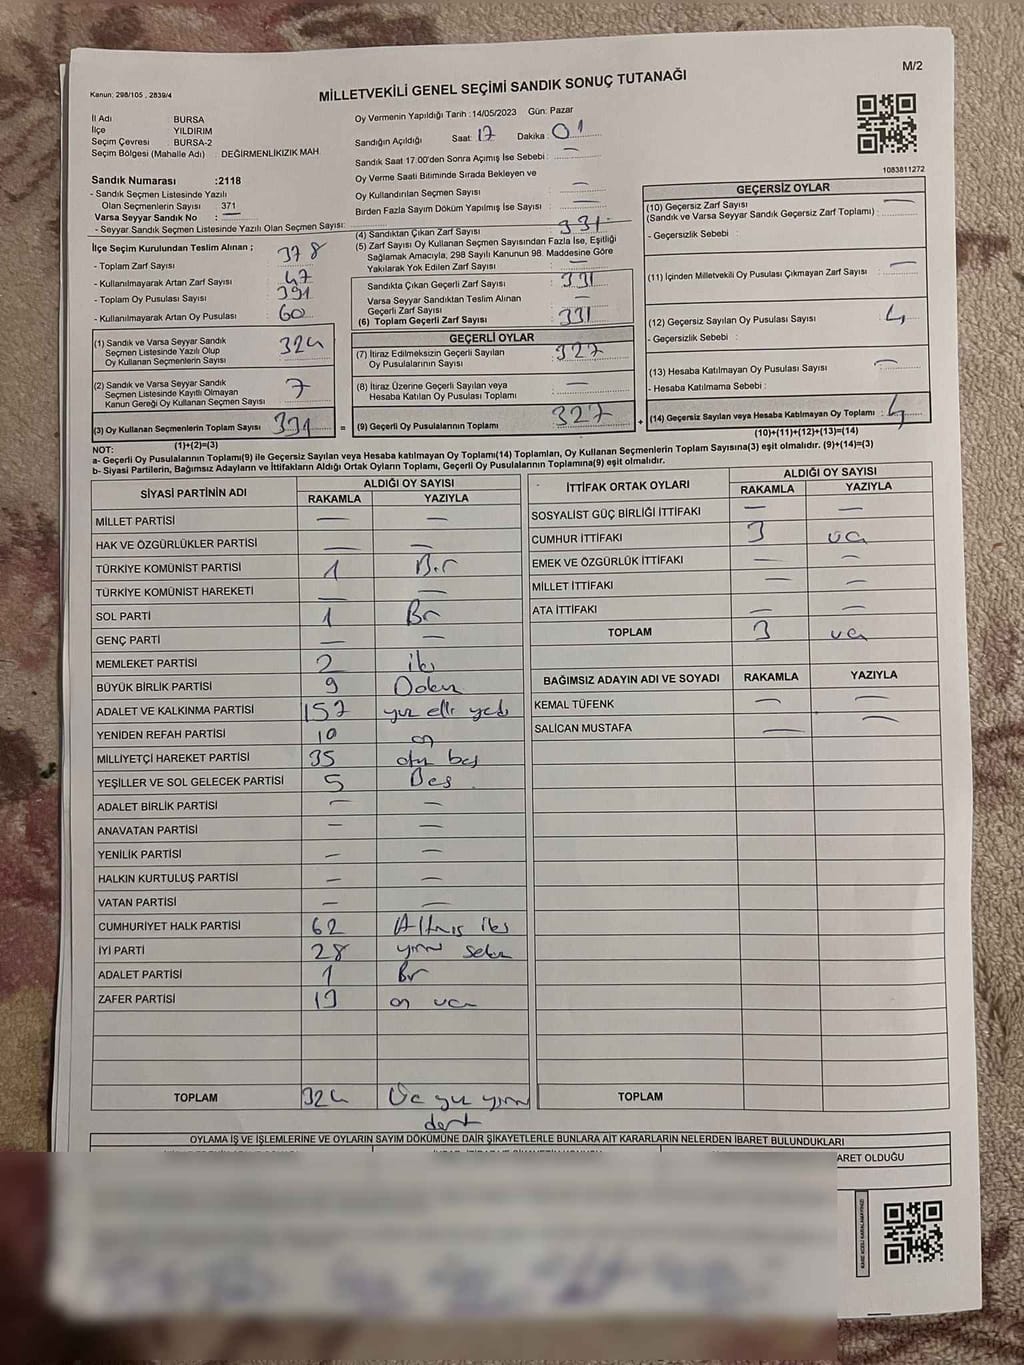 M/2
Kanun; 298/105 , 2839/4
MİLLETVEKİLİ GENEL SEÇİMİ SANDIK SONUÇ TUTANAĞI
İl Adı BURSA
İlçe YILDIRIM
Seçim Çevresi BURSA-2
Seçim Bölgesi (Mahalle Adı) : DEĞİRMENLİKIZIK MAH.
Sandık Numarası :2118
- Sandık Seçmen Listesinde Yazılı
Olan Seçmenlerin Sayısı 371
Varsa Seyyar Sandık No : —
- Seyyar Sandık Seçmen Listesinde Yazılı Olan Seçmen Sayısı:
Oy Vermenin Yapıldığı Tarih : 14/05/2023 Gün: Pazar
Sandığın Açıldığı Saat: 17 Dakika : 01
Sandık Saat 17:00'den Sonra Açımış İse Sebebi : —
Oy Verme Saati Bitiminde Sırada Bekleyen ve
Oy Kullandırılan Seçmen Sayısı —
Birden Fazla Sayım Döküm Yapılmış İse Sayısı —
1083811272
İlçe Seçim Kurulundan Teslim Alınan ;
- Toplam Zarf Sayısı 378
- Kullanılmayarak Artan Zarf Sayısı 47
- Toplam Oy Pusulası Sayısı 391
- Kullanılmayarak Artan Oy Pusulası 60
(1) Sandık ve Varsa Seyyar Sandık
Seçmen Listesinde Yazılı Olup
Oy Kullanan Seçmenlerin Sayısı 324
(2) Sandık ve Varsa Seyyar Sandık
Seçmen Listesinde Kayıtlı Olmayan
Kanun Gereği Oy Kullanan Seçmen Sayısı 7
(3) Oy Kullanan Seçmenlerin Toplam Sayısı 331
(1)+(2)=(3)
(4) Sandıktan Çıkan Zarf Sayısı 331
(5) Zarf Sayısı Oy Kullanan Seçmen Sayısından Fazla İse, Eşitliği
Sağlamak Amacıyla, 298 Sayılı Kanunun 98. Maddesine Göre
Yakılarak Yok Edilen Zarf Sayısı —
Sandıkta Çıkan Geçerli Zarf Sayısı 331
Varsa Seyyar Sandıktan Teslim Alınan
Geçerli Zarf Sayısı —
(6) Toplam Geçerli Zarf Sayısı 331
GEÇERLİ OYLAR
(7) İtiraz Edilmeksizin Geçerli Sayılan
Oy Pusulalarının Sayısı 327
(8) İtiraz Üzerine Geçerli Sayılan veya
Hesaba Katılan Oy Pusulası Toplamı —
= (9) Geçerli Oy Pusulalarının Toplamı 327 +
GEÇERSİZ OYLAR
(10) Geçersiz Zarf Sayısı
(Sandık ve Varsa Seyyar Sandık Geçersiz Zarf Toplamı) : —
- Geçersizlik Sebebi :
(11) İçinden Milletvekili Oy Pusulası Çıkmayan Zarf Sayısı : —
(12) Geçersiz Sayılan Oy Pusulası Sayısı 4
- Geçersizlik Sebebi :
(13) Hesaba Katılmayan Oy Pusulası Sayısı : —
- Hesaba Katılmama Sebebi :
(14) Geçersiz Sayılan veya Hesaba Katılmayan Oy Toplamı : 4
(10)+(11)+(12)+(13)=(14)
NOT:
a- Geçerli Oy Pusulalarının Toplamı(9) ile Geçersiz Sayılan veya Hesaba katılmayan Oy Toplamı(14) Toplamları, Oy Kullanan Seçmenlerin Toplam Sayısına(3) eşit olmalıdır. (9)+(14)=(3)
b- Siyasi Partilerin, Bağımsız Adayların ve İttifakların Aldığı Ortak Oyların Toplamı, Geçerli Oy Pusulalarının Toplamına(9) eşit olmalıdır.
SİYASİ PARTİNİN ADI ALDIĞI OY SAYISI
RAKAMLA YAZIYLA
MİLLET PARTİSİ — —
HAK VE ÖZGÜRLÜKLER PARTİSİ — —
TÜRKİYE KOMÜNİST PARTİSİ 1 Bir
TÜRKİYE KOMÜNİST HAREKETİ — —
SOL PARTİ 1 Bir
GENÇ PARTİ — —
MEMLEKET PARTİSİ 2 iki
BÜYÜK BİRLİK PARTİSİ 9 Dokuz
ADALET VE KALKINMA PARTİSİ 157 yuz elli yedi
YENİDEN REFAH PARTİSİ 10 on
MİLLİYETÇİ HAREKET PARTİSİ 35 otuz beş
YEŞİLLER VE SOL GELECEK PARTİSİ 5 Beş
ADALET BİRLİK PARTİSİ — —
ANAVATAN PARTİSİ — —
YENİLİK PARTİSİ — —
HALKIN KURTULUŞ PARTİSİ — —
VATAN PARTİSİ — —
CUMHURİYET HALK PARTİSİ 62 Altmış iki
İYİ PARTİ 28 yirmi sekiz
ADALET PARTİSİ 1 Bir
ZAFER PARTİSİ 13 on uc
TOPLAM 324 Uc yuz yirmi
dört
İTTİFAK ORTAK OYLARI ALDIĞI OY SAYISI
RAKAMLA YAZIYLA
SOSYALİST GÜÇ BİRLİĞİ İTTİFAKI — —
CUMHUR İTTİFAKI 3 uc
EMEK VE ÖZGÜRLÜK İTTİFAKI — —
MİLLET İTTİFAKI — —
ATA İTTİFAKI — —
TOPLAM 3 uc
BAĞIMSIZ ADAYIN ADI VE SOYADI RAKAMLA YAZIYLA
KEMAL TÜFENK — —
SALİCAN MUSTAFA — —
TOPLAM
OYLAMA İŞ VE İŞLEMLERİNE VE OYLARIN SAYIM DÖKÜMÜNE DAİR ŞİKAYETLERLE BUNLARA AİT KARARLARIN NELERDEN İBARET BULUNDUKLARI
ARET OLDUĞU